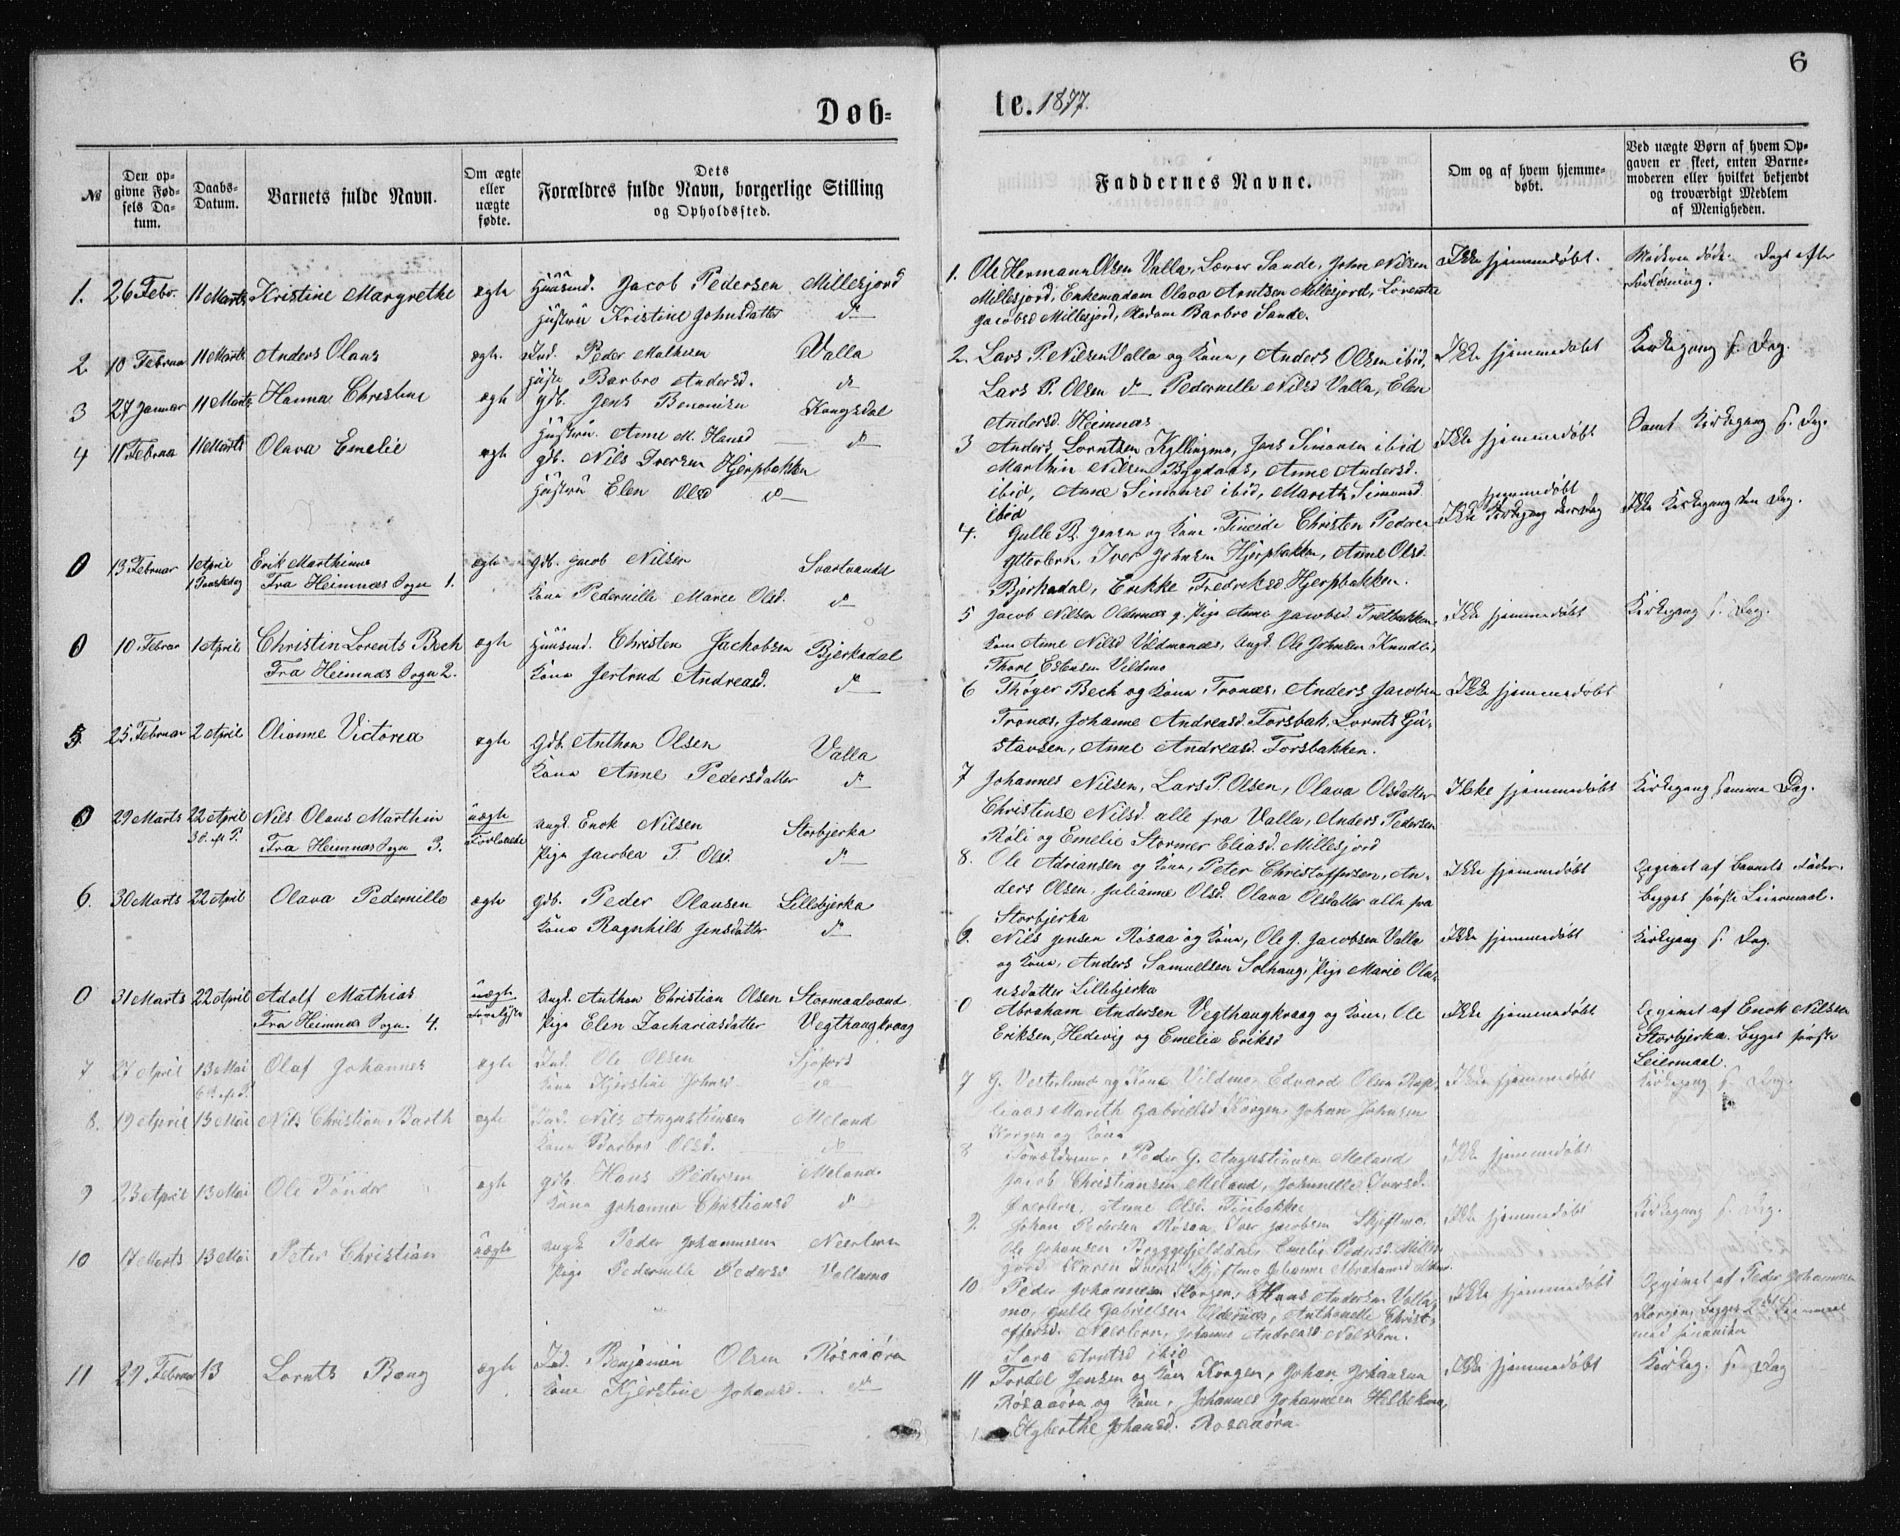 6
Døb=
te. 1877.
№
Den opgivne Fødsels Datum.
Daabs-Datum.
Barnets fulde Navn.
Om ægte eller uægte fødte.
Dets Forældres fulde Navn, borgerlige Stilling og Opholdssted.
Faddernes Navne.
Om og af hvem hjemmedøbt.
Ved uægte Børn af hvem Opgaven er skeet, enten Barnemoderen eller hvilket bekjendt og troværdigt Medlem af Menigheden.
1. 26 Febr. 11 Marts Kristine Margrethe ægte Huusmd. Jacob Pedersen Millesjord
Hustru Kristine Johnsdatter do
2 10 Februar 11 Marts Anders Olaus ægte. Ind. Peder Mathisen Valla
Hustr Barbro Andersd. do
3 27 Januar 11 Marts Hanna Christine ægte Gdb. Jens Benonisen Kongsdal
Hustru. Anne M. Hansd do
4 11 Februar 11 Marts Olava Emelie ægte Gdb. Nils Iversen Hjerpbakken
Hustru Elen Olsd do
0 13 Februar 1 April Erik Marthinus ægte Gdb. Jacob Nilsen Svartvandet
1 Paaskedag Fra Heimnæs Sogn 1. Kone Pedernille Marie Olsd. do
0 10 Februar 1 April Christin Lorents Bech ægte Huusmd. Christen Jachobsen Bjerkadal
Fra Heimnæs Sogn 2. Kone Gertrud Andreasd. do
5 25 Februar 2 April Olianne Victoria ægte Gdb. Anthon Olsen Valla
Kone Anne Pedersdatter do
0 29 Marts 22 April Nils Olaus Marthin uægte Ungk. Enok Nilsen Storbjerka
3 S. eft P. Fra Heimnæs Sogn 3. Forlovede Pige Jacobea T. Olsd. do
6. 30 Marts 22 April Olava Pedernille ægte Gdb. Peder Olausen Lillebjerka
Kone Ragnhild Jensdatter do
0 31 Marts 22 April Adolf Mathias uægte Ungk. Anthon Christian Olsen Stormaalvand
Fra Heimnæs Sogn. 4. Pige Elen Zachariasdatter Vegthaugkraag
7 27 April 13 Mai Olaf Johannes ægte Ind. Ole Olsen Sjofors
Kone Kjerstine Johnsd do
8. 19 April 13 Mai Nils Christian Barth ægte Ind. Nils Augustinsen Meland
Kone Barbro Olsd. do
9 23 April 13 Mai Ole Tønder ægte Gdb. Hans Pedersen Meland.
Kone Johanna Christiansd do
10 17 Marts 13 Mai Peter Christian uægte Ungk. Peder Johannesen Neerleren
Pige Pedernille Pedersd Vallamo
11 29 Februar 13 Lornts Bang ægte Ind. Benjamin Olsen Røsaaøren
Kone Kjerstine Johansd. do
1. Ole Hermann Olsen Valla, Lærer Sande, John Nilsen Ikke hjemmedøbt. Moderen døde Dagt efter
Millesjord, Enkemadam Olava Arntsen Millesjord, Lorentse Forløsning.
Jacobsd Millesjord, Madam Barbro Sande.
2. Lars P. Nilsen Valla og Kone, Anders Olsen ibid, Ikke hjemmedøbt Kirkegang s. Dag.
Lars P. Olsen do Pedernille Nilsd Valla, Elen
Andersd. Heimnæs
3 Anders Lorntsen Kyllingmo, Jens Simonsen ibid Ikke hjemmedøbt Samt Kirkegang s. Dag.
Marthin Nilsen Bygdaas, Anne Andersd.
ibid, Anne Simonsd ibid, Mareth Simonsd.
ibid
4. Gulle P. Jensen og Kone Fineide Christen Peders Ikke hjemmedøbt Ikke Kirkegang den Dag.
Ytterlern, Iver Johnsen Hjerpbakken, Anne Olsd.
Bjerkadal, Enkke Fredriksd Hjerpbakken.
5 Jacob Nilsen Oldernæs g. Pige Anne Jacobsd. Trelbakken Ikke hjemmedøbt Kirkegang s. Dag.
Kone Anne Nilsd Vildmonæs, Ungk. Ole Johnsen Knudli
Thore Estensen Vildmo
6 Thøger Bech og Kone, Tronæs, Anders Jacobsen Ikke hjemmedøbt
Tronæs, Johanne Andreasd. Forsbak. Lornts Gu-
stavsen, Anne Andreasd. Forsbakken.
7 Johannes Nilsen, Lars P. Olsen, Olava Olsdatter Ikke hjemmedøbt Kirkegang samme Dag.
Christense Nilsd. alle fra Valla, Anders Pedersen
Røli og Emelie Stormer Eliasd. Millesjord
8. Ole Adriansen og Kone, Peter Christoffersen, An- Ikke hjemmedøbt Opgivet af Barnets Fader.
ders Olsen, Julianne Olsd. Olava Olsdatter alle fra Begges første Leiermaal.
Storbjerka
6. Nils Jensen Røsaa og Kone, Ole J. Jacobsen Valla Ikke hjemmedøbt Kirkegang s. Dag.
og Kone, Anders Samuelsen Solhaug, Pige Marie Ola-
usdatter Lillebjerka
0 Abraham Andersen Vegthaugkraag og Kone, Ole Ikke hjemmedøbt Opgivet af Enok Nilsen
Eriksen, Hedevig og Emelie Eriksd Storbjerka. Begges første
Leiermaal
7 G. Vesterlund og Kone Vildmo, Edvard Olsen Ikke hjemmedøbt Kirkegang s. Dag.
Mareth Gabrielsd Korgen, Johan Johnsen
Korgen og Kone
8 Forældrene, Peder G. Augustinsen Meland Ikke hjemmedøbt
Jacob Christiansen Meland, Johnnelle Iversd.
Anne Olsd.
9. Johan Pedersen Røsaa, Iver Jacobsen Skjeftmo Ikke hjemmedøbt Kirkegang s. Dag.
Ole Johansen Bryggfjelddal, Emelie Pedersd. Milles-
jord Karen Iversd Skjeftmo Johanne Abrahamsd
10 Peder Johannesen Korgen, Hans Andersen Valla- Ikke hjemmedøbt Opgivet af Peder Johannesen
mo, Gulle Gabrielsen Oldernæs, Anthonette Christ- Korgen, begges 2det Leiermaal
offersd. Neerlern, Johanne Andreasd
Sara Arntsd ibid
11 Tordel Jensen og Kone Korgen, Johan Johansen Ikke hjemmedøbt Kirkeg. s. Dag
Røsaaøren og Kone, Johannes Johannesen
Johansd. Rosaaøren